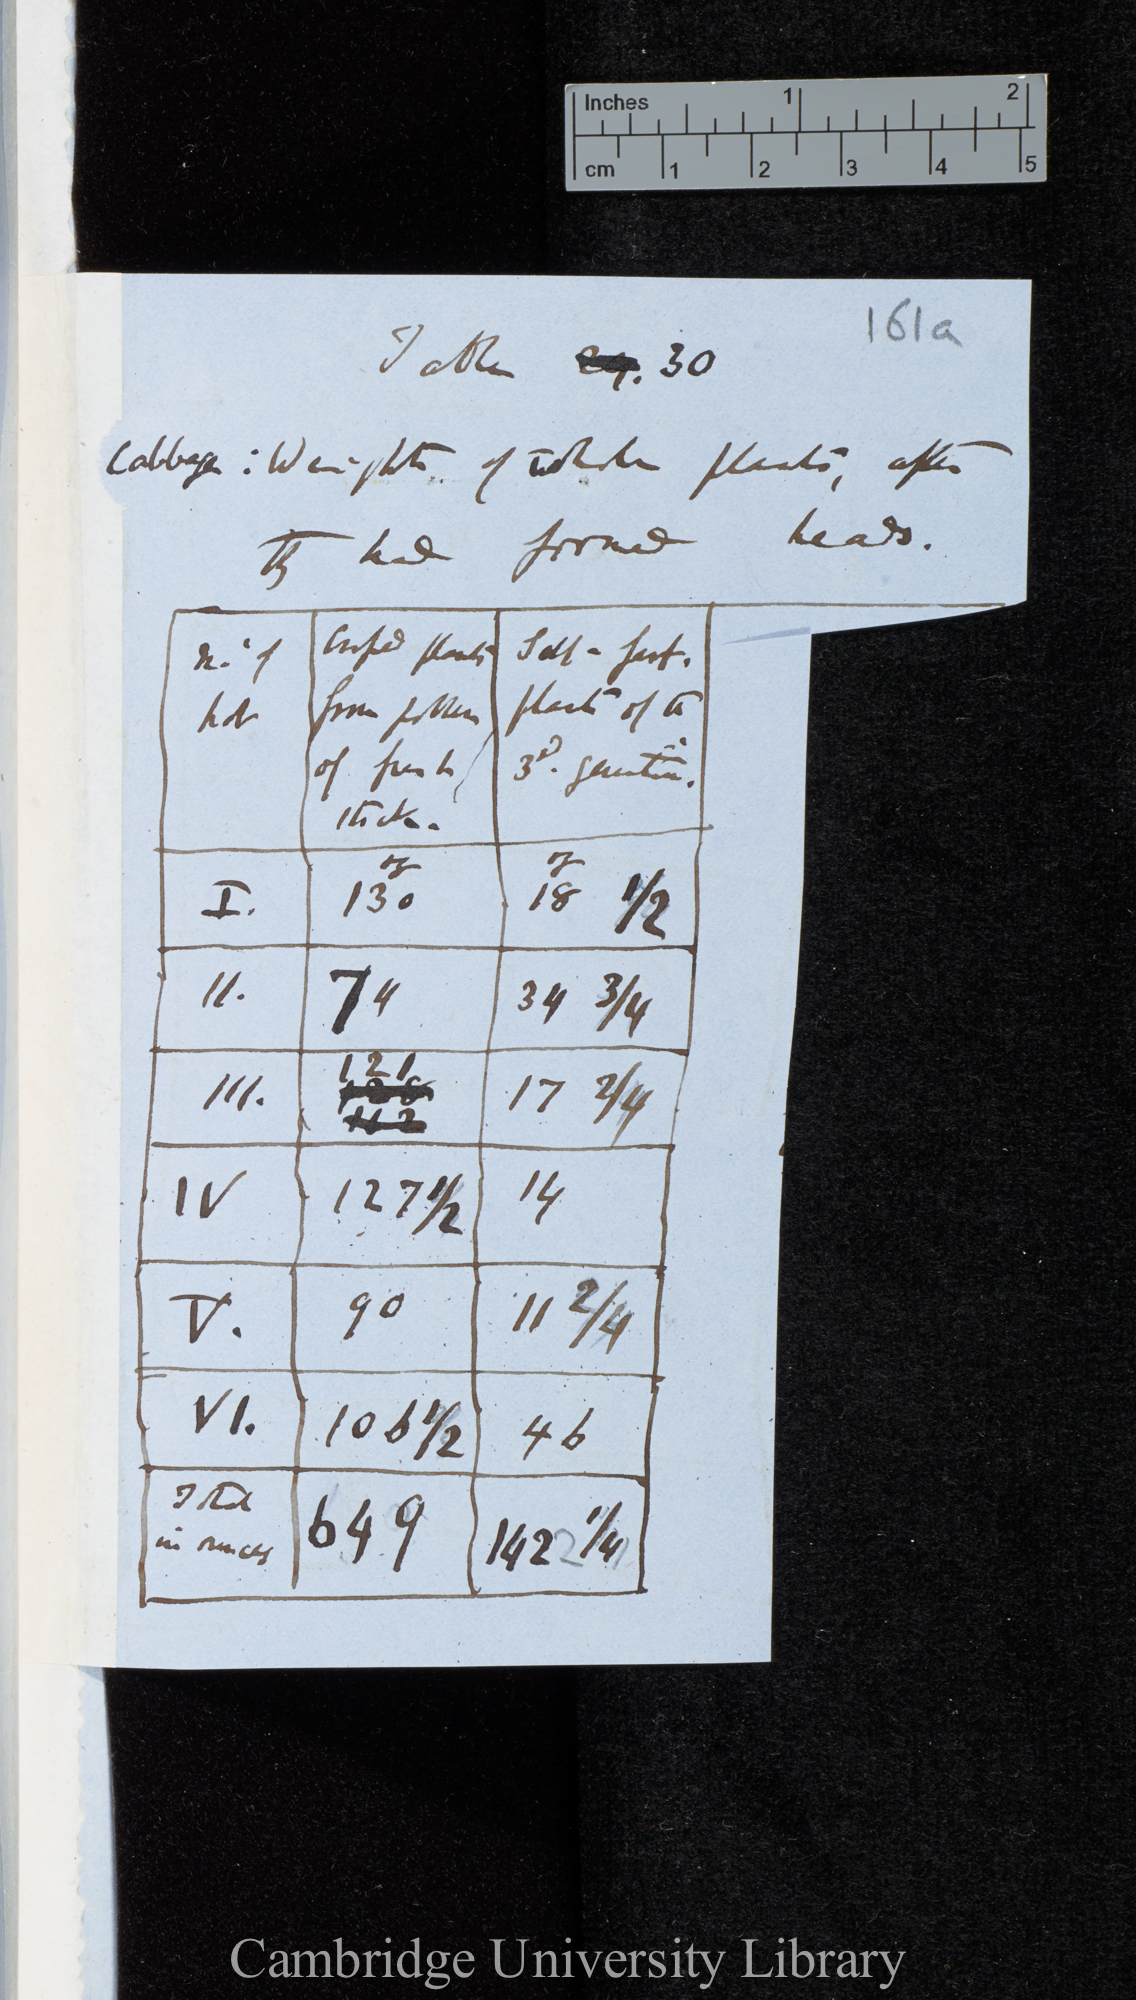 Inches 1 2
cm 1 2 3 4 5
161a
Table 30
Cabbage: Weights of whole plants, after
they had formed heads.
No. of
Pot
Crossed plants
from pollen
of fresh
stock.
Self-fert.
plants of the
3d. generation.
I.
oz
130
oz
18 1/2
II.
74
34 3/4
III.
121
17 2/4
IV
127 1/2
14
V.
90
11 2/4
VI.
106 1/2
46
Total
in ounces
649
142 1/4
Cambridge University Library